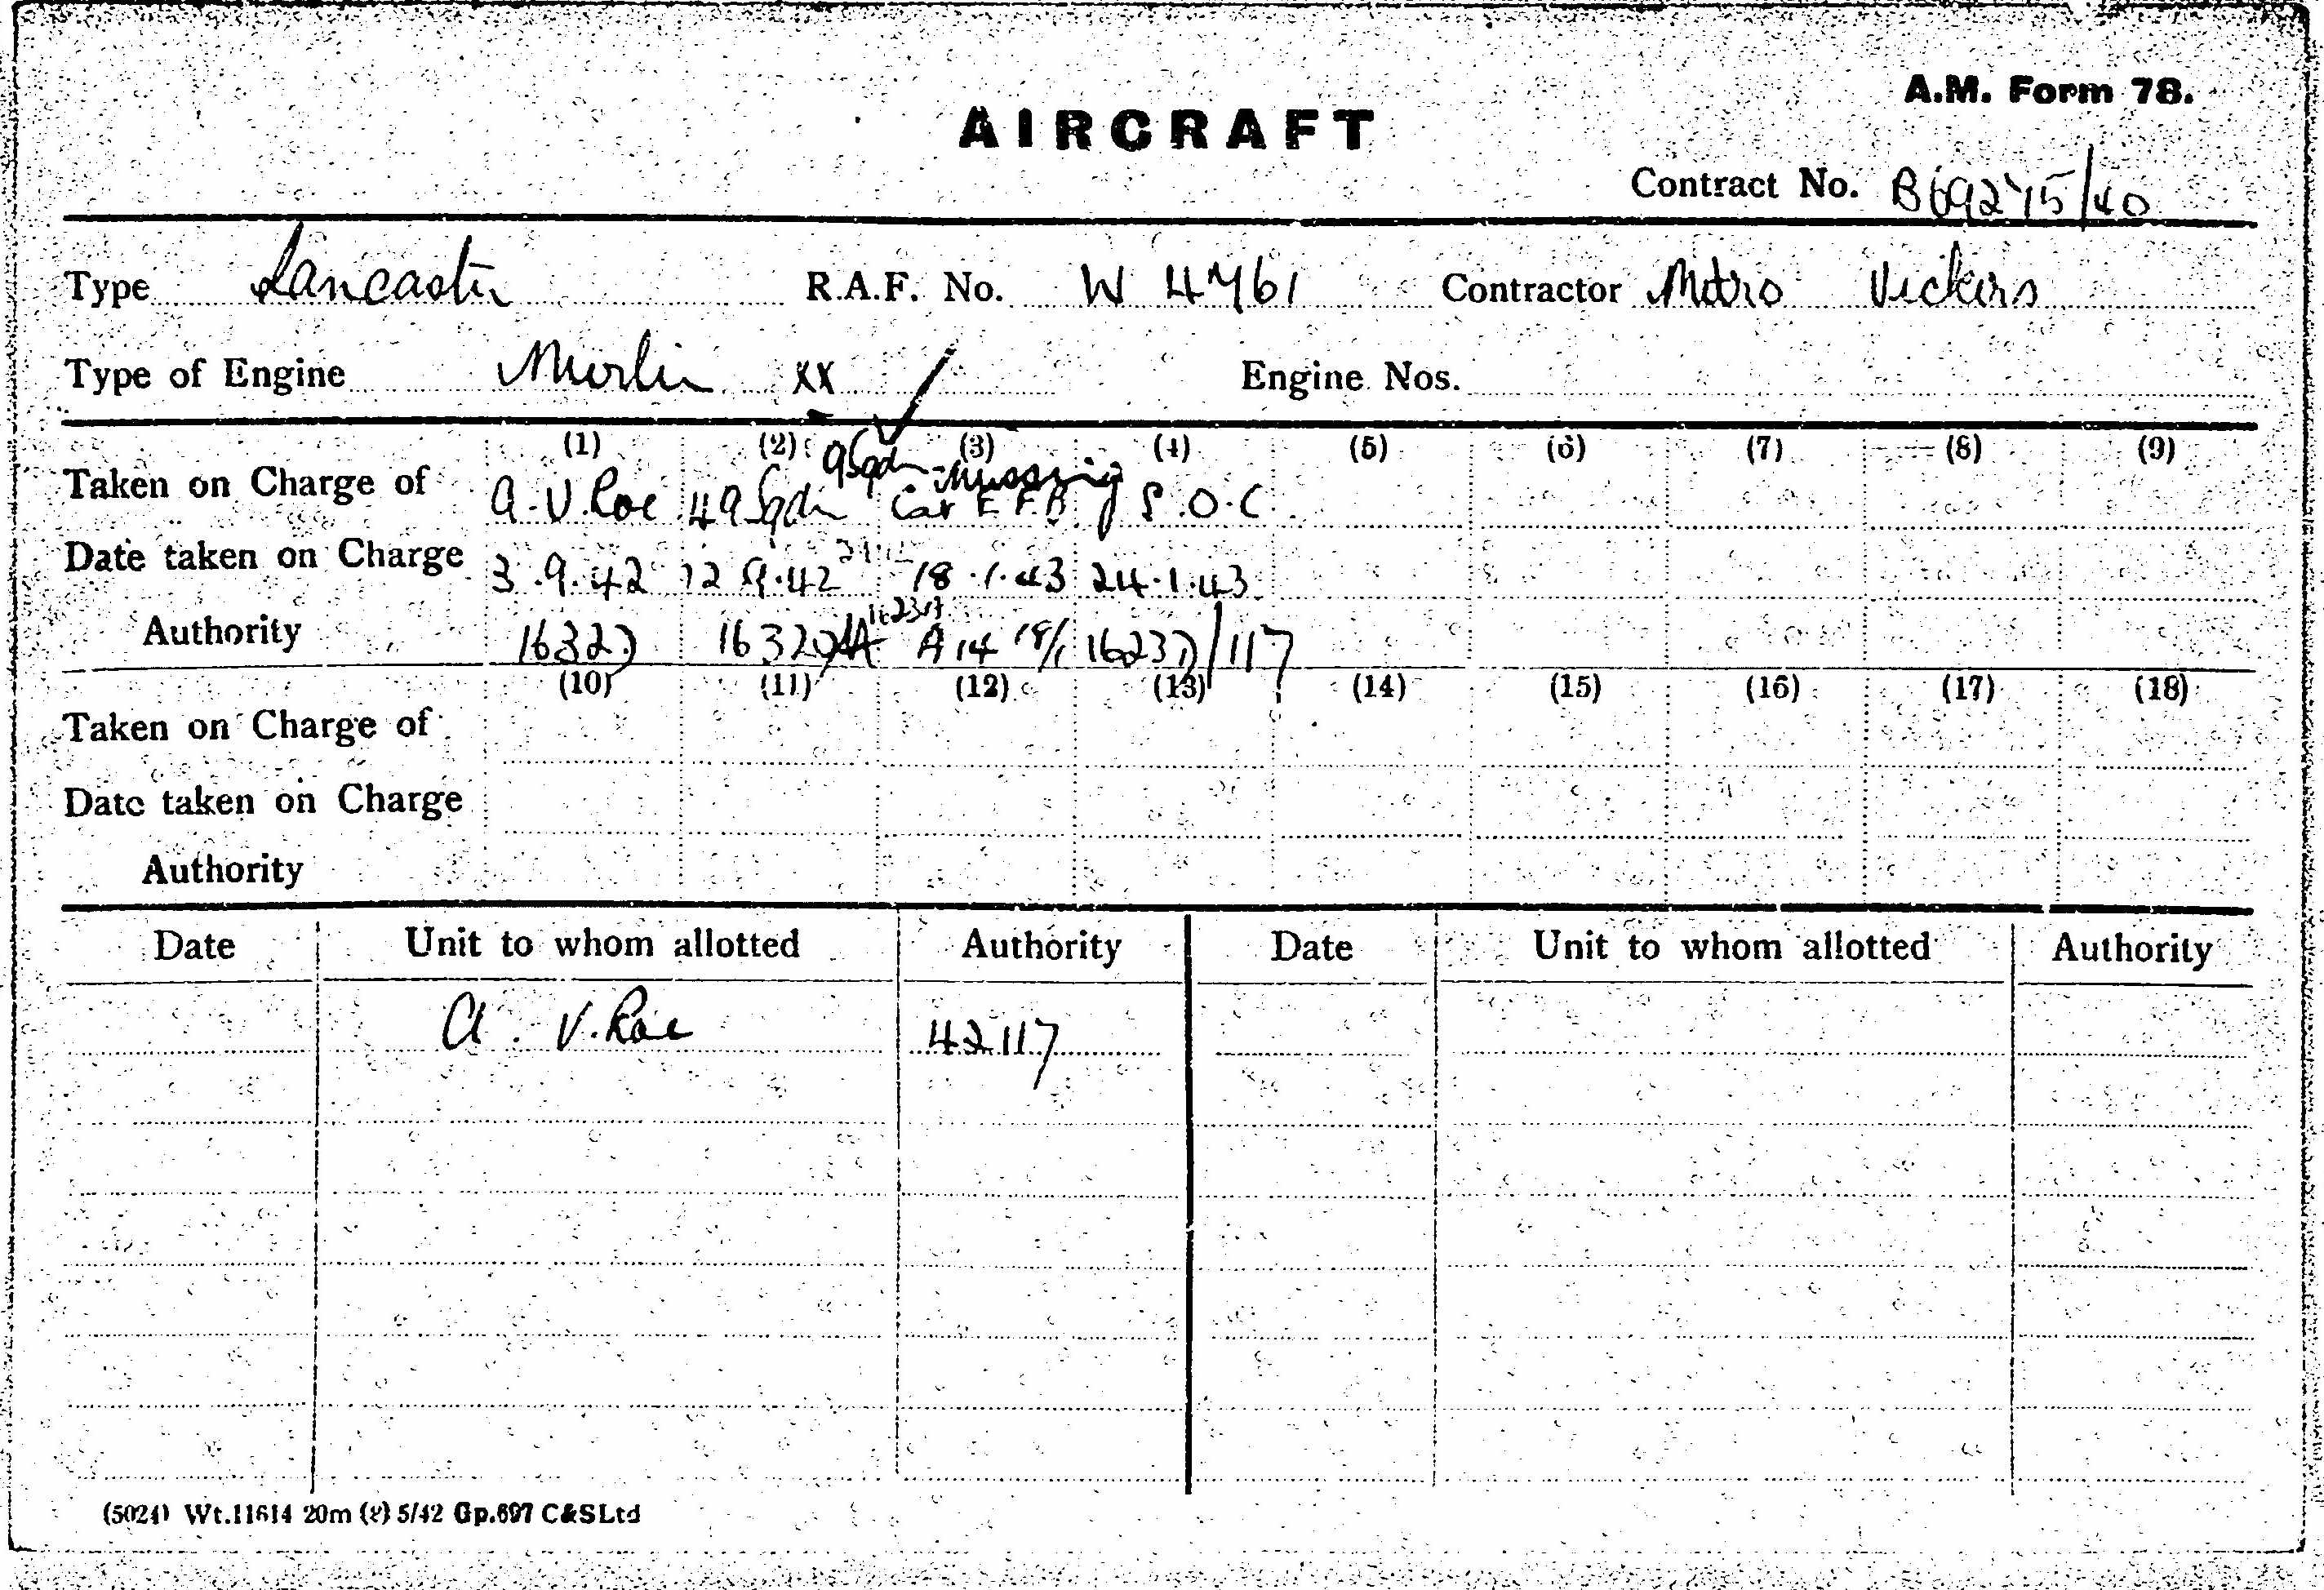 A.M. Form 78.
AIRCRAFT
Contract No. B69275/40
Type Lancaster R.A.F. No. W 4761 Contractor Metro Vickers
Type of Engine Merlin XX Engine Nos.
(1) (2) (3) (4) (5) (6) (7) (8) (9)
9 Sqdn - Missing
Taken on Charge of A.V.Roe 49 Sqdn Cat E F.B. S.O.C.
Date taken on Charge 3.9.42 12.9.42 18.1.43 24.1.43
Authority A14 18/1
(10) (11) (12) (13) (14) (15) (16) (17) (18)
Taken on Charge of
Date taken on Charge
Authority
Date Unit to whom allotted Authority Date Unit to whom allotted Authority
A. V. Roe 42117
(5024) Wt.11614 20m (2) 5/42 Gp.697 C&SLtd